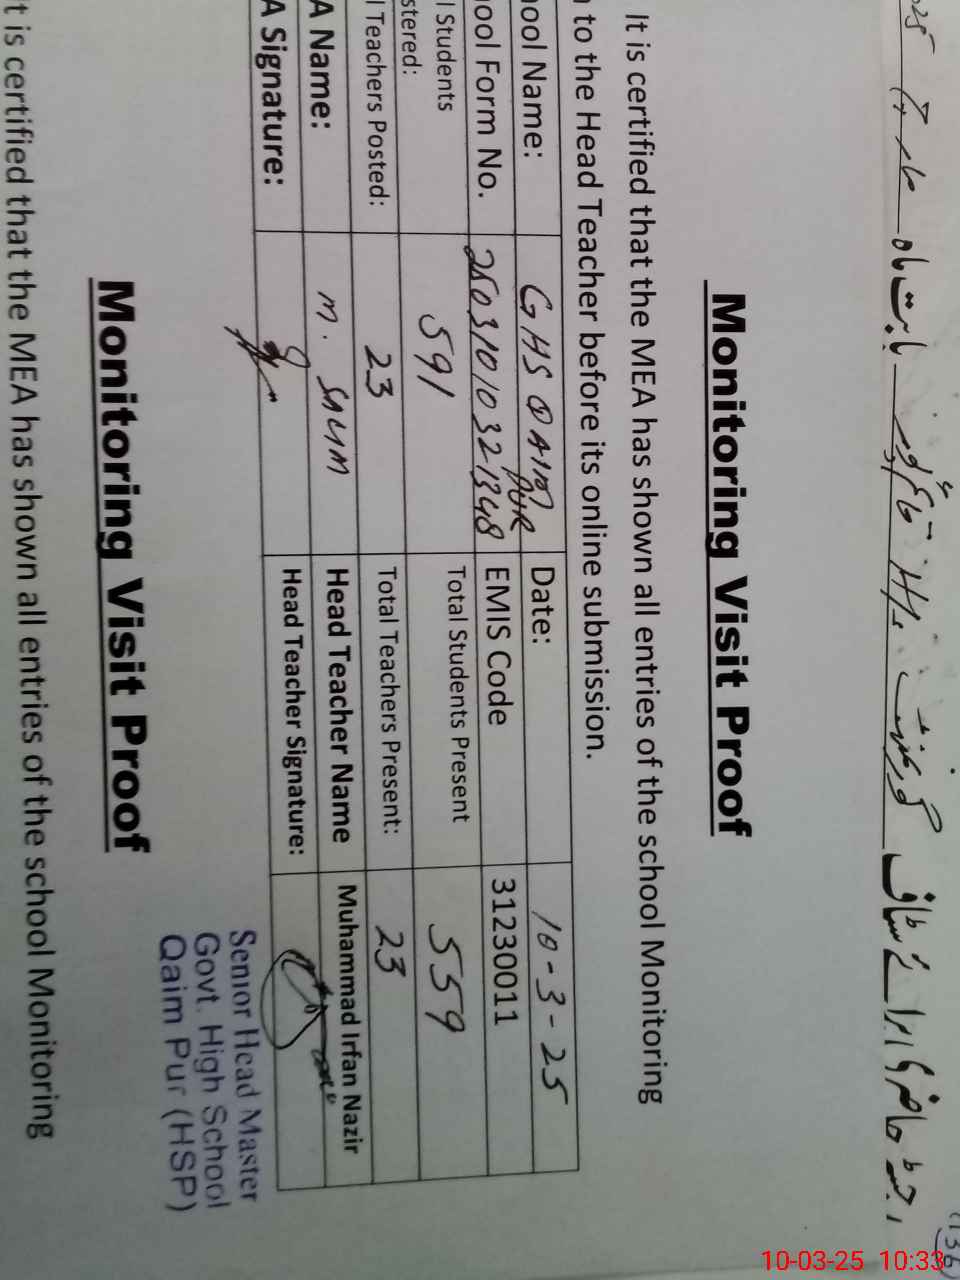 رجسٹر حاضری برائے سٹاف گورنمنٹ ہائی سکول بابت ماہ مارچ 2025
Monitoring Visit Proof
It is certified that the MEA has shown all entries of the school Monitoring
to the Head Teacher before its online submission.
ool Name: GHS QAIM PUR Date: 10-3-25
ool Form No. 25031010321348 EMIS Code 31230011
l Students stered: 591 Total Students Present 559
l Teachers Posted: 23 Total Teachers Present: 23
A Name: M. SALIM Head Teacher Name Muhammad Irfan Nazir
A Signature: Head Teacher Signature:
Senior Head Master
Govt. High School
Qaim Pur (HSP)
Monitoring Visit Proof
It is certified that the MEA has shown all entries of the school Monitoring
10-03-25 10:33